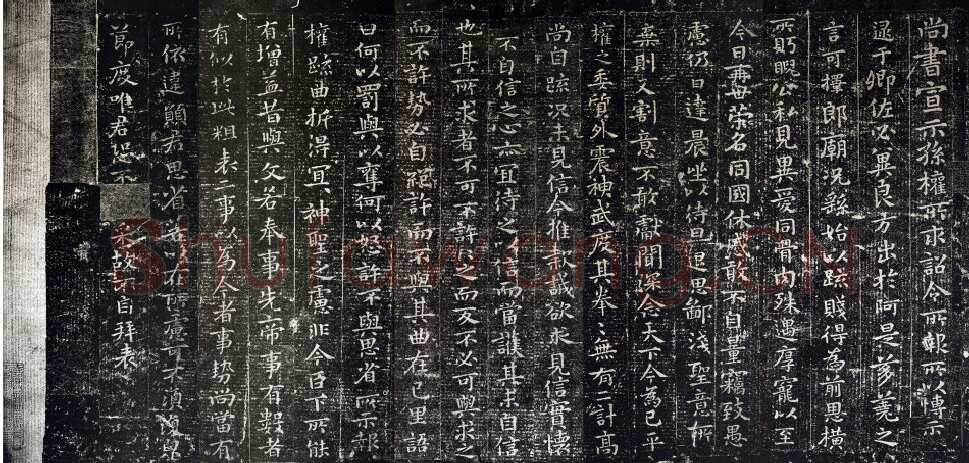 尚書宣示孫權所求詔令所報所以博示
逮于卿佐必冀良方出於阿是芻蕘之
言可擇郎廟況繇始以疏賤得為前恩橫
所眖睨公私見異愛同骨肉殊遇厚寵以至
今日再世榮名同國休慼敢不自量竊致愚
慮仍日達晨坐以待旦退思鄙淺聖意所
棄則又割意不敢獻聞深念天下今為已平
權之委質外震神武度其拳〻無有二計高
尚自疏況未見信今推款誠欲求見信實懷
不自信之心亦宜待之以信而當護其未自信
也其所求者不可不許許之而反不必可與求之
而不許勢必自絕許而不與其曲在己里語
曰何以罰與以奪何以怒許不與思省所示報
權疏曲折得宜宜神聖之慮非今臣下所能
有增益昔與文若奉事先帝事有數者
有似於此粗表二事以為今者事勢尚當有
所依違願君思省若以在所慮可不須復貌
節度唯君恐不
采故不自拜表
Shufawang.CN